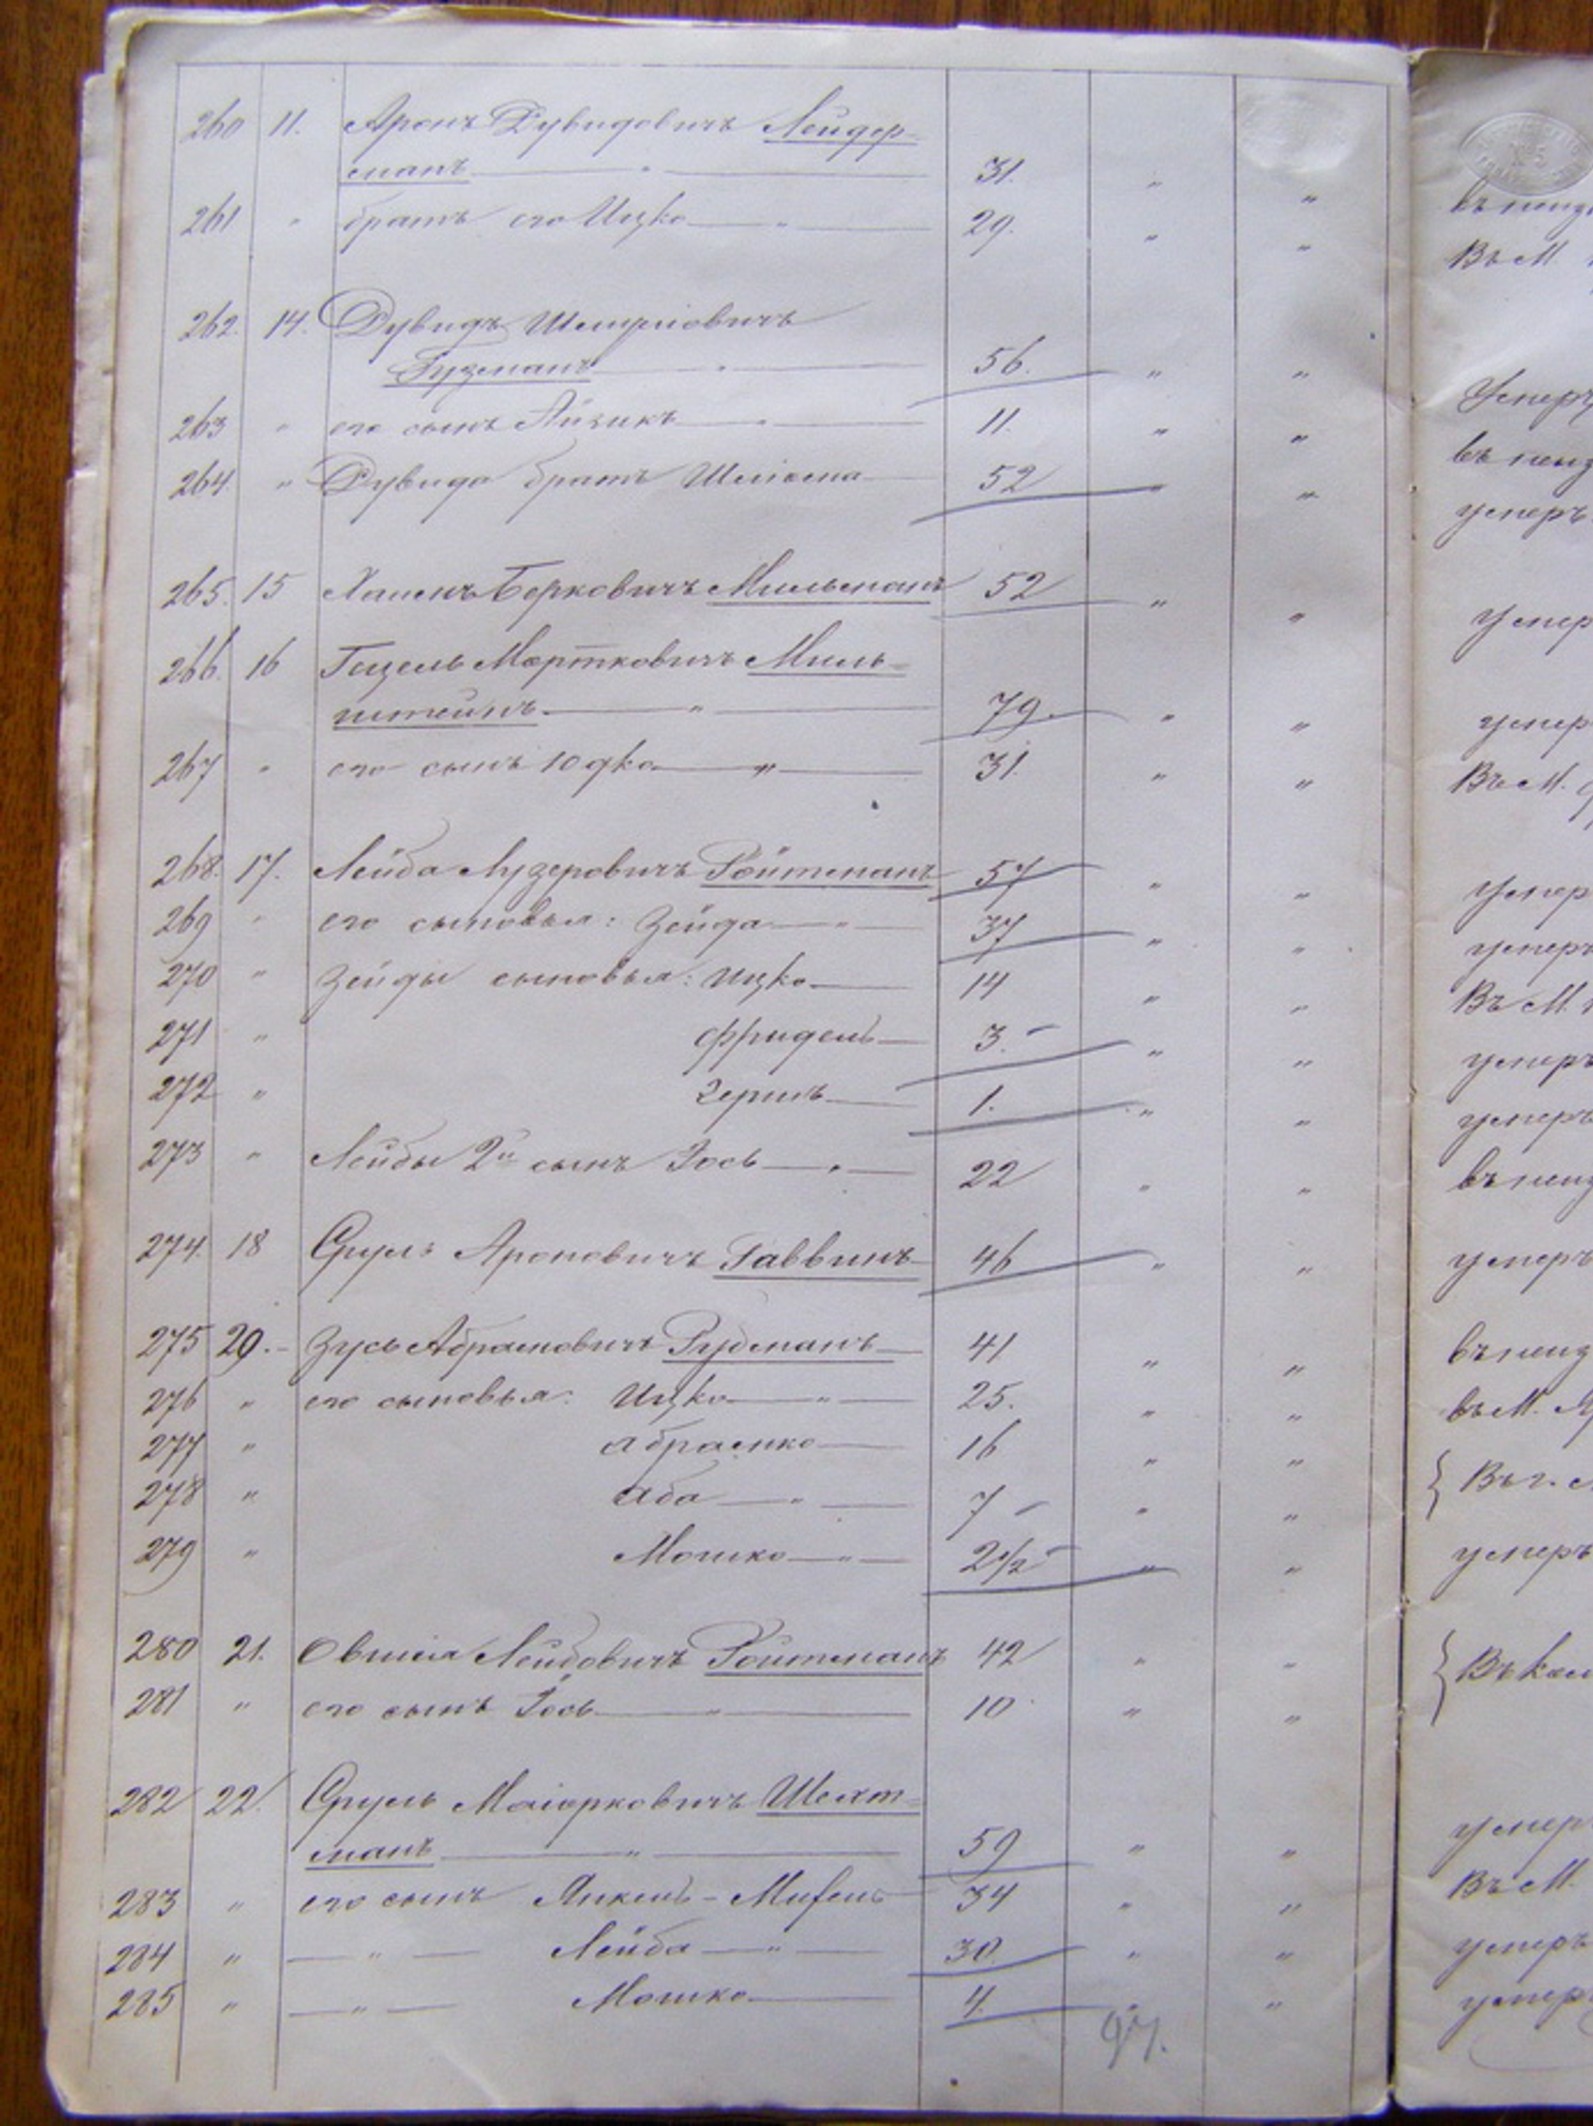 260 11. Аронъ Дувидовичъ Лейдер=
манъ " 31. " "
261 " братъ его Ицко " 29. " "
262. 14. Дувидъ Шмулiовичъ
Гузманъ " 56. " "
263 " его сынъ Айзикъ " 11. " "
264. " Дувида братъ Шлiома 52 " "
265. 15 Хаимъ Берковичъ Мильманъ 52 " "
266. 16 Гецель Мортковичъ Миль=
штейнъ " 79. " "
267 " его сынъ Юдко " 31. " "
268. 17. Лейба Лузеровичъ Ройтманъ 57 " "
269 " его сыновья: Зейда " 37 " "
270 " Зейды сыновья: Ицко 14 " "
271 " Фридель 3. " "
272 " Гершъ 1. " "
273 " Лейбы 2й сынъ Iось " 22 " "
274. 18 Сруль Ароновичъ 46 " "
275 20. Зусь Абрамовичъ 41 " "
276 " его сыновья: Ицко " 25. " "
277 " Абрамко 16 " "
278 " Аба " 7 " "
279 " Мошко " 2 1/2 " "
280 21. Овшiя Лейбовичъ Ройтманъ 42 " "
281 " его сынъ Iось " 10 " "
282 22. Сруль Маiорковичъ Шехт=
манъ " 59 " "
283 " его сынъ Янкель - 34 " "
284 " " Лейба " 30. " "
285 " " Мошко 4. " "
97.
№ 5
Въ М.
Умеръ
умеръ
Въ М.
умеръ
Въ М.
умеръ
умеръ
умеръ
въ М.
Въ г.
умеръ
Въ
Въ М.
умеръ